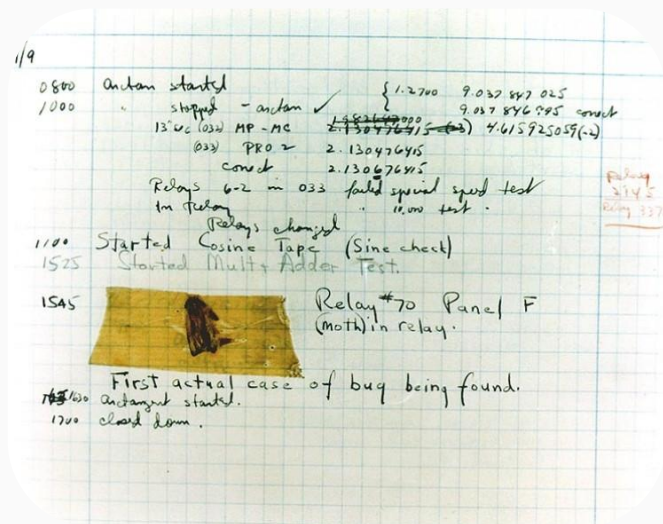 1/9
0800 arctan started { 1.2700 9.037 847 025
1000 " stopped - arctan ✓ 9.037 846 795 conect
13" uc (032) MP - MC 2.130476415 4.615925059(-2)
(033) PRO 2 2.130476415
conect 2.130676415
Relays 6-2 in 033 failed special speed test
In Relay " 10.000 test .
Relays changed
Relay
2145
Relay 337
1100 Started Cosine Tape (Sine check)
1525 Started Mult + Adder Test.
1545 Relay #70 Panel F
(moth) in relay.
First actual case of bug being found.
1630 arctangent started.
1700 closed down.